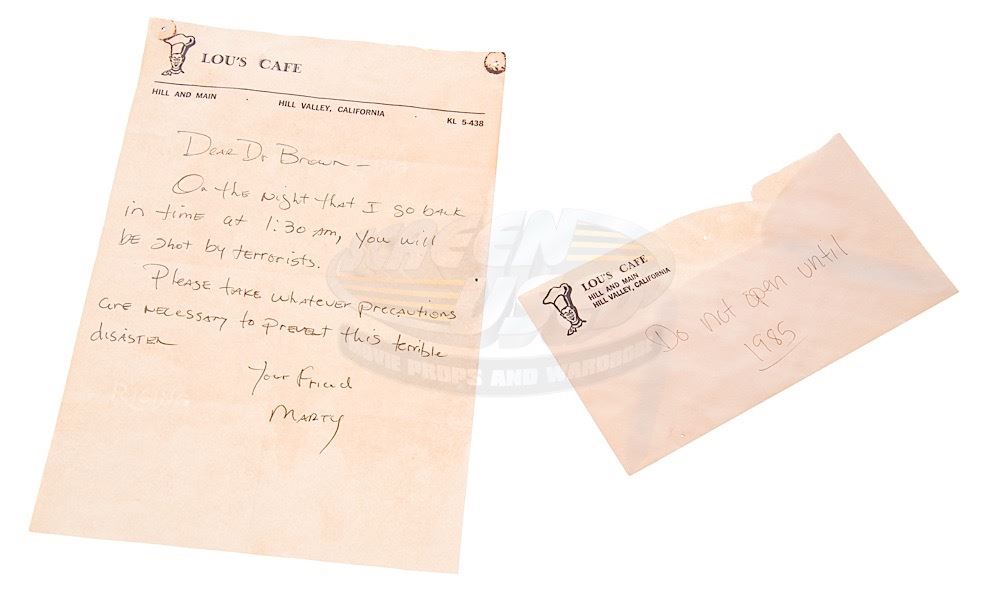 LOU'S CAFE
HILL AND MAIN
HILL VALLEY, CALIFORNIA
KL 5-438
Dear Dr Brown —
On the night that I go back
in time at 1:30 AM, you will
be shot by terrorists.
Please take whatever precautions
are necessary to prevent this terrible
disaster
Your Friend
Marty
LOU'S CAFE
HILL AND MAIN
HILL VALLEY, CALIFORNIA
Do not open until
1985
SCREEN USED
MOVIE PROPS AND WARDROBE